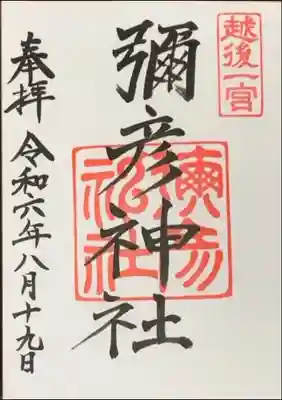 越後一宮
彌彦神社
彌彦神社
奉拝 令和六年八月十九日